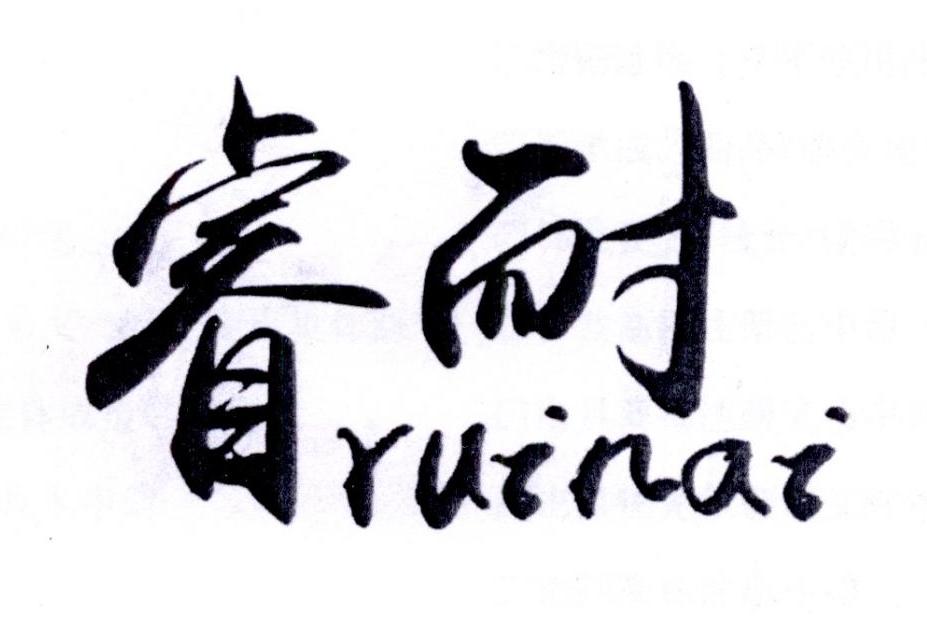 睿耐
ruinai